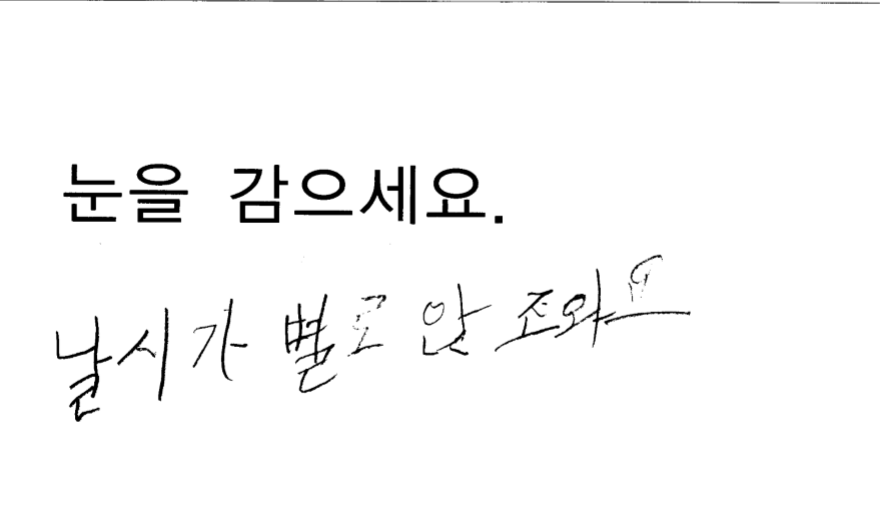 눈을 감으세요.
날시가 별로 안 조와요